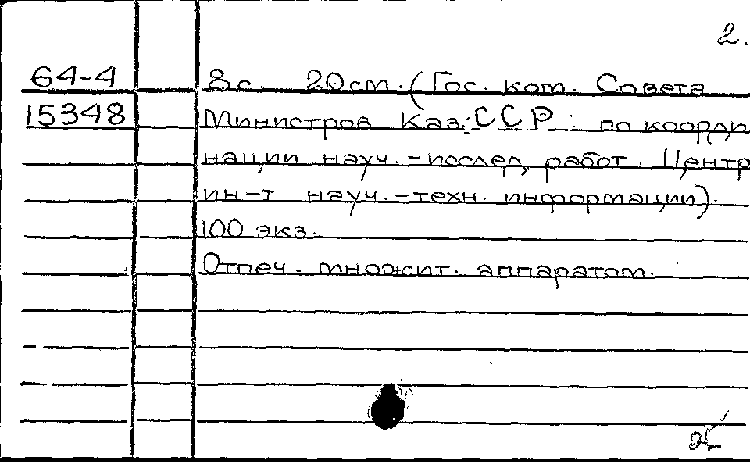 2.
64-4 8 с. 20 см. (Гос. ком. Совета
15348 Министров Каз. ССР по коорди
нации науч.-исслед. работ. Центр.
ин-т науч.-техн. информации).
100 экз.
Отпеч. множит. аппаратом.